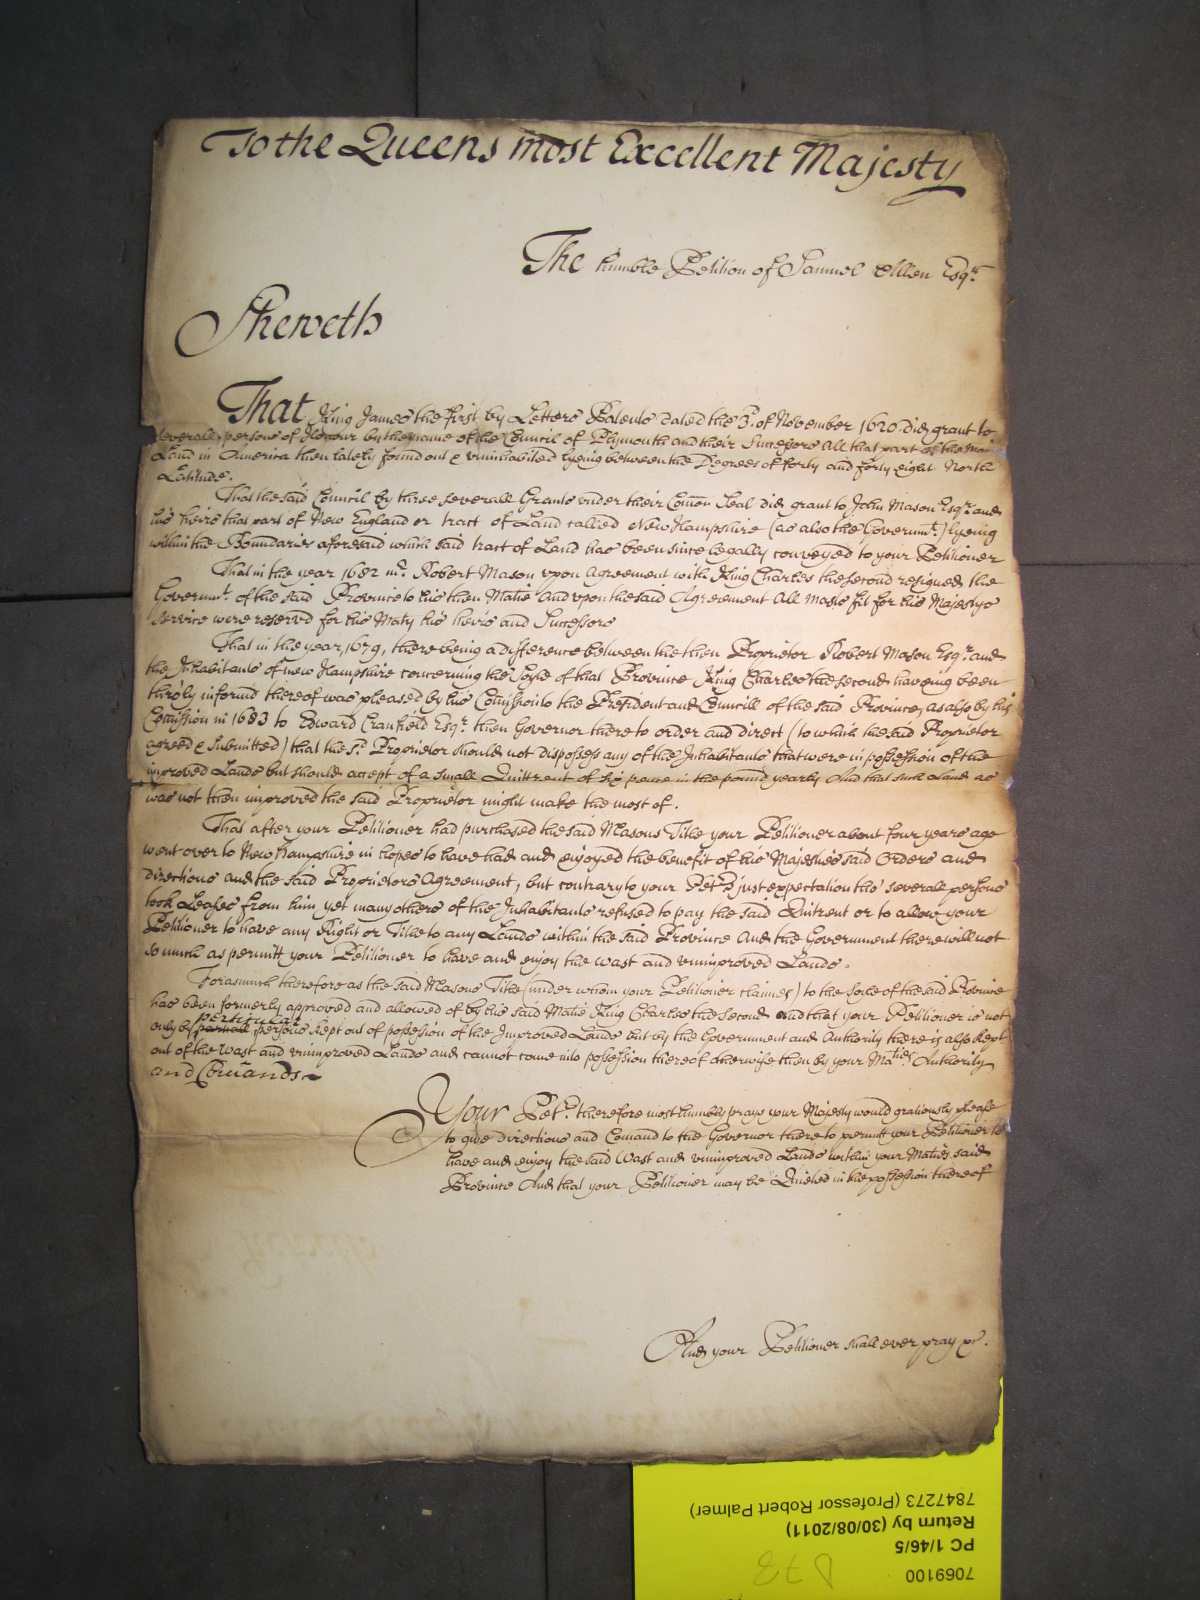 To the Queens most Excellent Majesty
The humble Petition of Samuel Allen Esqr.
Sheweth
That King James the first by Letters Patents dated the 3d. of November 1620 did grant to
severall persons of Honour by the name of the Councill of Plymouth and their Successors All that part of the main
Land in America then lately found out & uninhabited lyeing between the Degrees of forty and forty eight North
Latitude.
That the said Council by three severall Grants under their Comon Seal did grant to John Mason Esqr. and
his heirs that part of New England or tract of Land called New Hampshire (as also the Governmt.) lyeing
within the Boundaries aforesaid which said tract of Land has been since legally conveyed to your Petitioner
That in the year 1682 mr. Robert Mason upon Agreement with King Charles the second resigned the
Governmt. of the said Province to his then Matie And upon the said Agreement All Masts fit for his Majestys
service were reserved for his Maty his heirs and Successors
That in the year 1679, there being a difference between the then Proprietor Robert Mason Esqr. and
the Inhabitants of new Hampshire concerning the Soyle of that Province King Charles the second haveing been
throly informd thereof was pleased by his Comission to the President and Councill of the said Province, as also by his
Comission in 1683 to Edward Cranfield Esqr. then Governor there to order and direct (to which the said Proprietor
agreed & submitted) that the sd. Proprietor should not dispossess any of the Inhabitants that were in possession of the
improved Lands but should accept of a small Quittrent of six pence in the pound yearly And that such Land as
was not then improved the said Proprietor might make the most of.
That after your Petitioner had purchased the said Masons Title your Petitioner about four years ago
went over to New Hampshire in hopes to have had and enjoyed the benefit of his Majesties said Orders and
directions and the said Proprietors Agreement, but contrary to your Petrs. just expectation tho' severall persons
took Leases from him yet many others of the Inhabitants refused to pay the said Quitrent or to allow your
Petitioner to have any Right or Title to any Lands within the said Province And the Government there will not
so much as permitt your Petitioner to have and enjoy the wast and unimproved Lands.
Forasmuch therefore as the said Masons Title (under whom your Petitioner claimes) to the soyle of the said Province
has been formerly approved and allowed of by his said Matie King Charles the second And that your Petitioner is not
only by particular persons kept out of possession of the Improved Lands but by the Government and Authority there is also kept
out of the Wast and unimproved Lands and cannot come into possession thereof otherwise then by your Maties. Authority
and Comands
Your Petr. therefore most humbly prays your Majesty would gratiously please
to give directions and Comand to the Governor there to permitt your Petitioner to
have and enjoy the said Wast and unimproved Lands within your Maties said
Province And that your Petitioner may be Quieted in the possession thereof
And your Petitioner shall ever pray &c.
7069100
PC 1/46/5
Return by (30/08/2011)
7847273 (Professor Robert Palmer)
D73